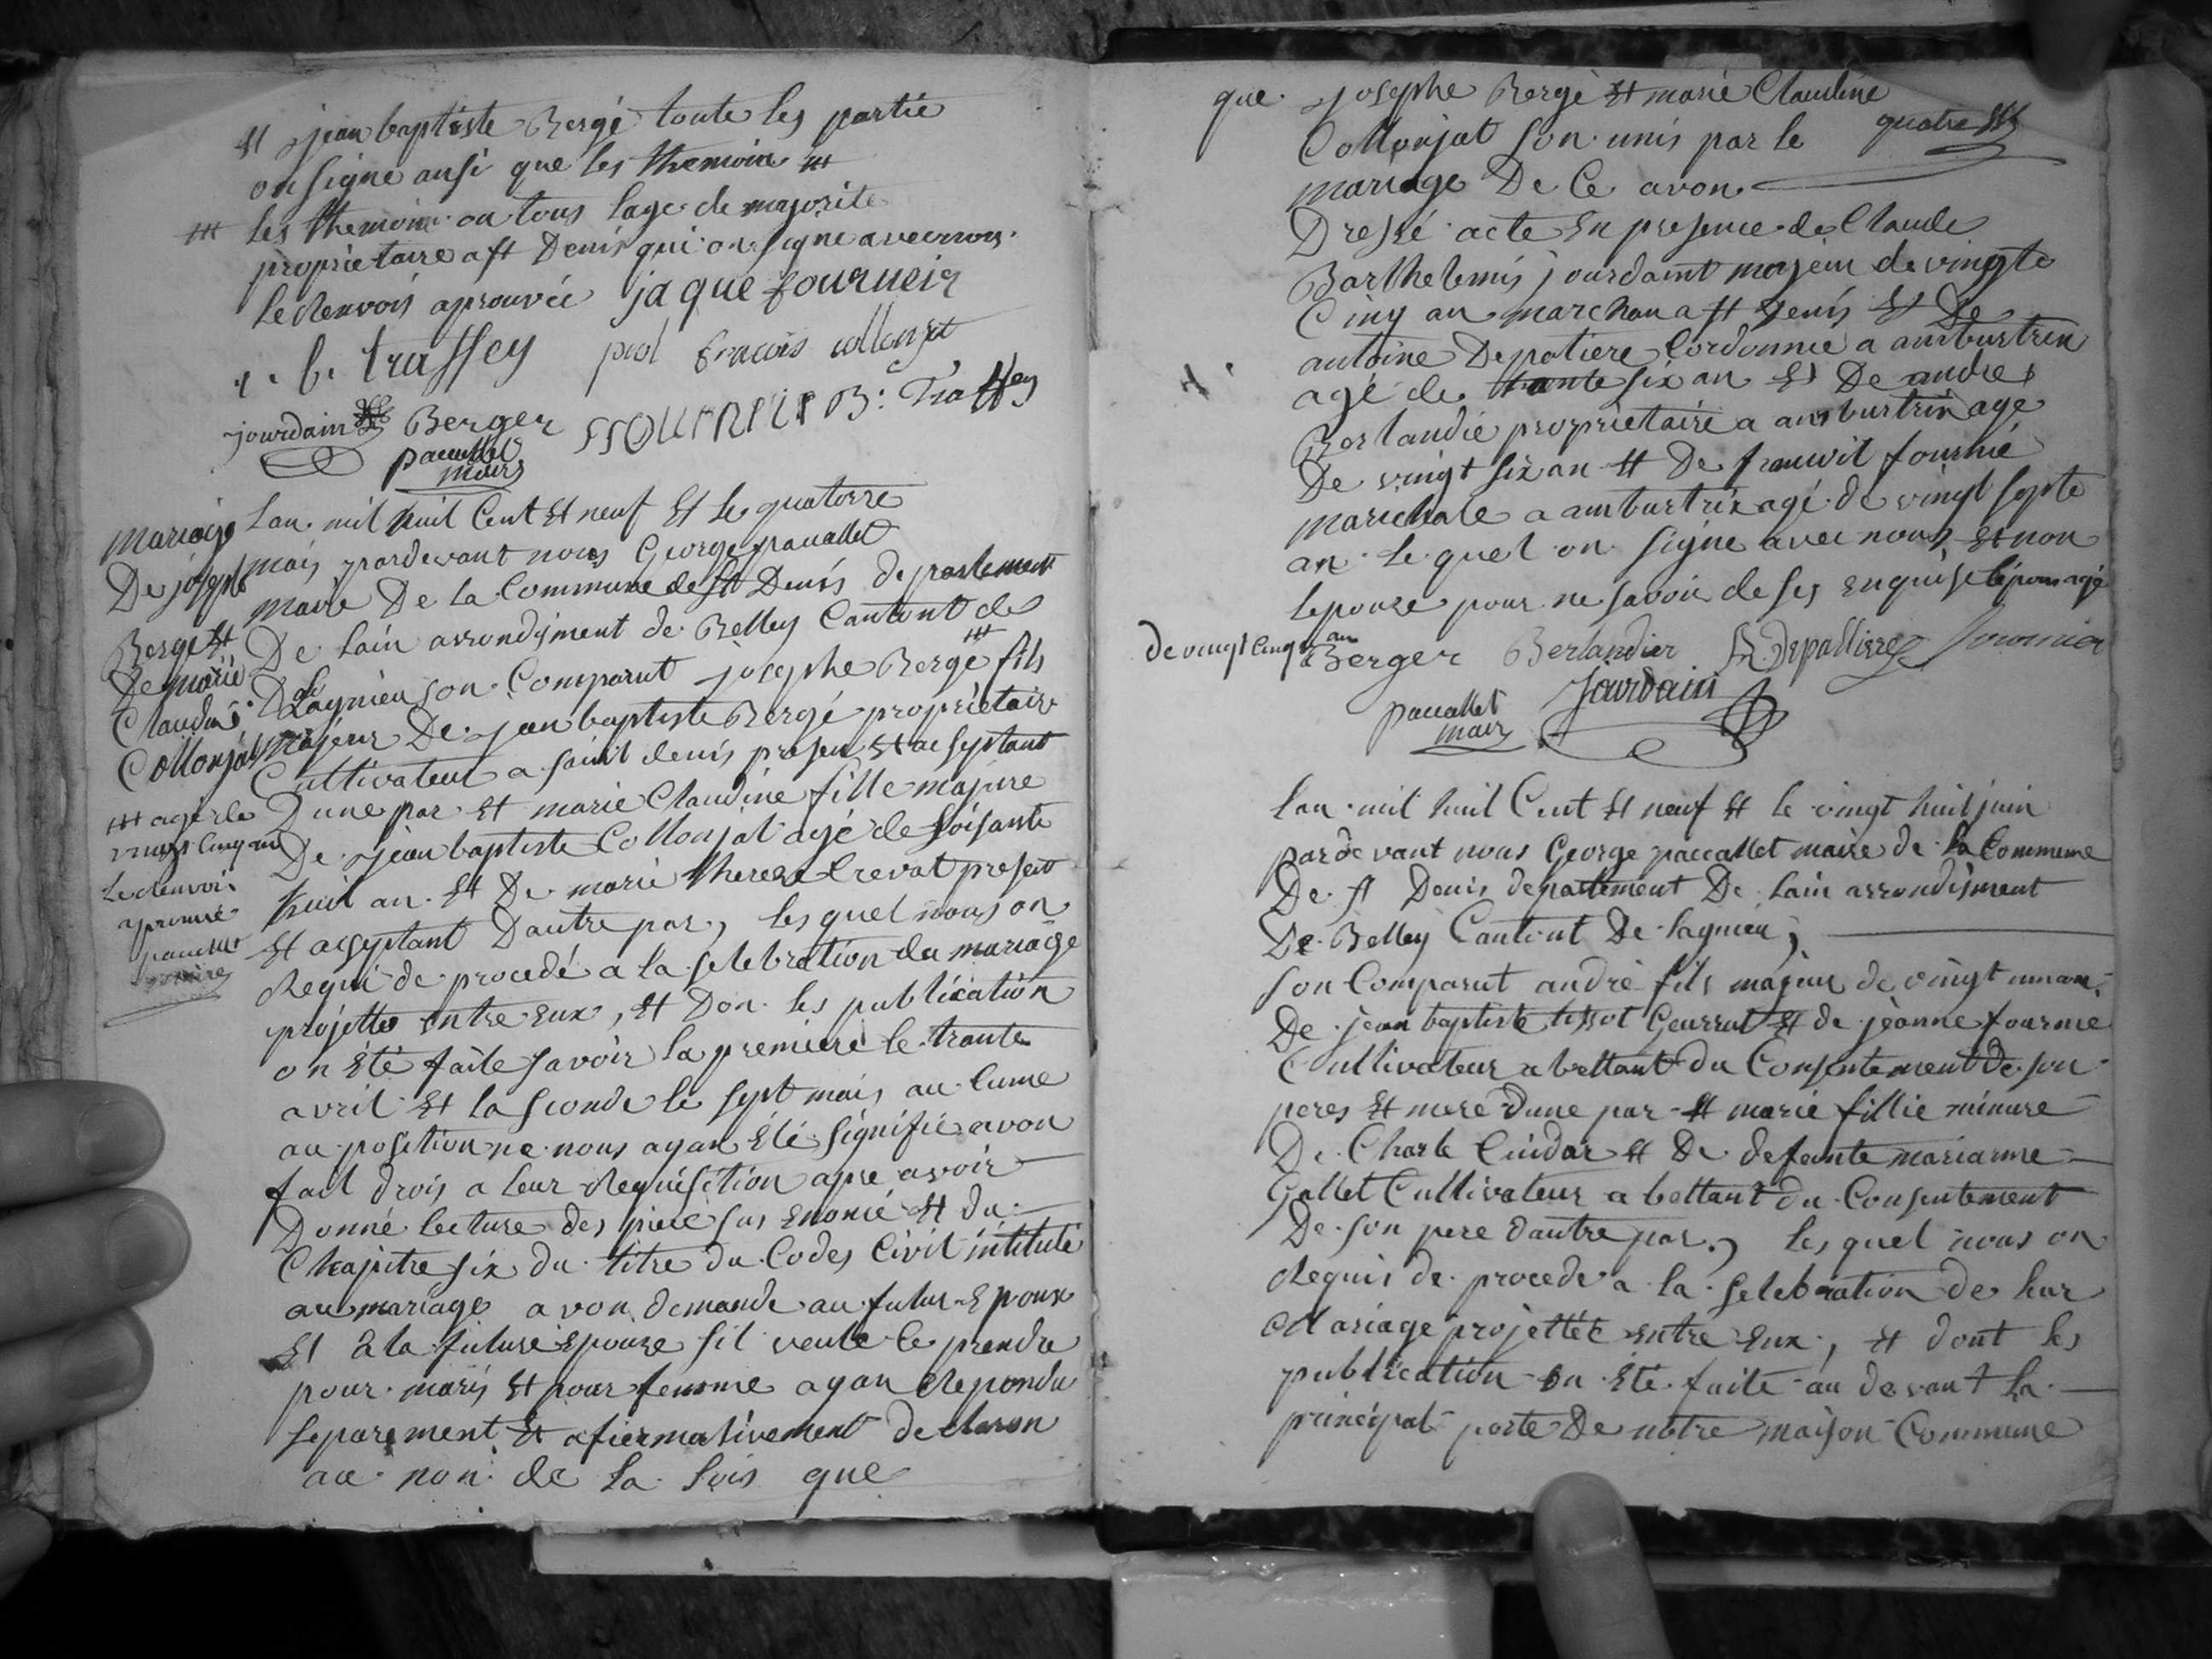 et jean baptiste Bergé toute les partie
on signe ansi que les themoin
les themoin on tous lage de majorité
proprietaire a st Denis qui on signe avec nous
le renvois aprouvée jaque fournier
b. trassey piol collonjat
jourdain Berger B. Trassey
pacallet
maire
mariage
De joseph
Bergé et
De marie
Claudine
Collonjat
agé de
vingt cinq an
le renvois
aprouvé
lan mil huil Cent et neuf et le quatorze
mais pardevant nous George paucallet
maire De la Commune de st Denis departement
De lain arrondisment de Belley Cantont de
Lagnieu son Comparut josephe Bergé fils
majeur De jean baptiste Bergé propriétaire
Cultivateur a saint denis presen et acseptant
Dune par et marie Claudine fille majure
De jean baptiste Collonjat agé de soisante
huit an et De marie therese Crevat present
et acseptant Dautre par, lesquel nous on
Requi de procedé a la selebration du mariage
projetté entre eux, et Don les publication
on été faite savoir la premiere le trante
avril et la sconde le sept mais au lume
au position ne nous ayan été signifié avon
fait drois a leur Requisition apre avoir
Donné lecture des piece sus enoncé et du
Chapitre six du titre du Codes Civil intitulé
au mariage avon demande au futur Epoux
Et a la future Epouse sil veule le prendre
pour maris et pour femme ayan Repondu
separement et afiermativement declaron
au non de la lois que
que josephe Bergé et marie Claudine
Collonjat son unis par le
mariage De Ce avon
Dressé acte En presence de Claude
Barthelemis jourdaint majeur de vingte
Cinq an marchan a st Denis et De
antoine Depatiere Cordonnie a ambustrix
agé de trante six an et De andre
Berlandié proprietaire a ambustrix agé
De vingt six an et De fournié
marichale a ambustrix agé de vingt septe
an lequel on signe avec nous et non
lepouse pour ne savoir de ses enquise
de vingt cinq an
Berger Berlandier Depallieres fournier
pacallet Jourdain
maire
lan mil huil Cent et neuf et le vingt huit juin
pardevant nous George paccallet maire de la Commune
De st Denis departement De lain arrondisment
De Belley Cantont De lagnieu;
son Comparut andré fils majeur de vingt un an
De jean baptiste tissot Geurrat et de jeanne fournie
Cultivateur a bettant du Consentement de son
peres et mere dune par et marie fillie minure
De Charle Cuidar et De defeunte marianne
Gallet Cultivateur a bettant du Consentement
De son pere dautre par, lesquel nous on
Requis de procede a la selebration de leur
Mariage projettée entre eux, et dont les
publication on été faite au devant la
principal porte De notre maison Commune